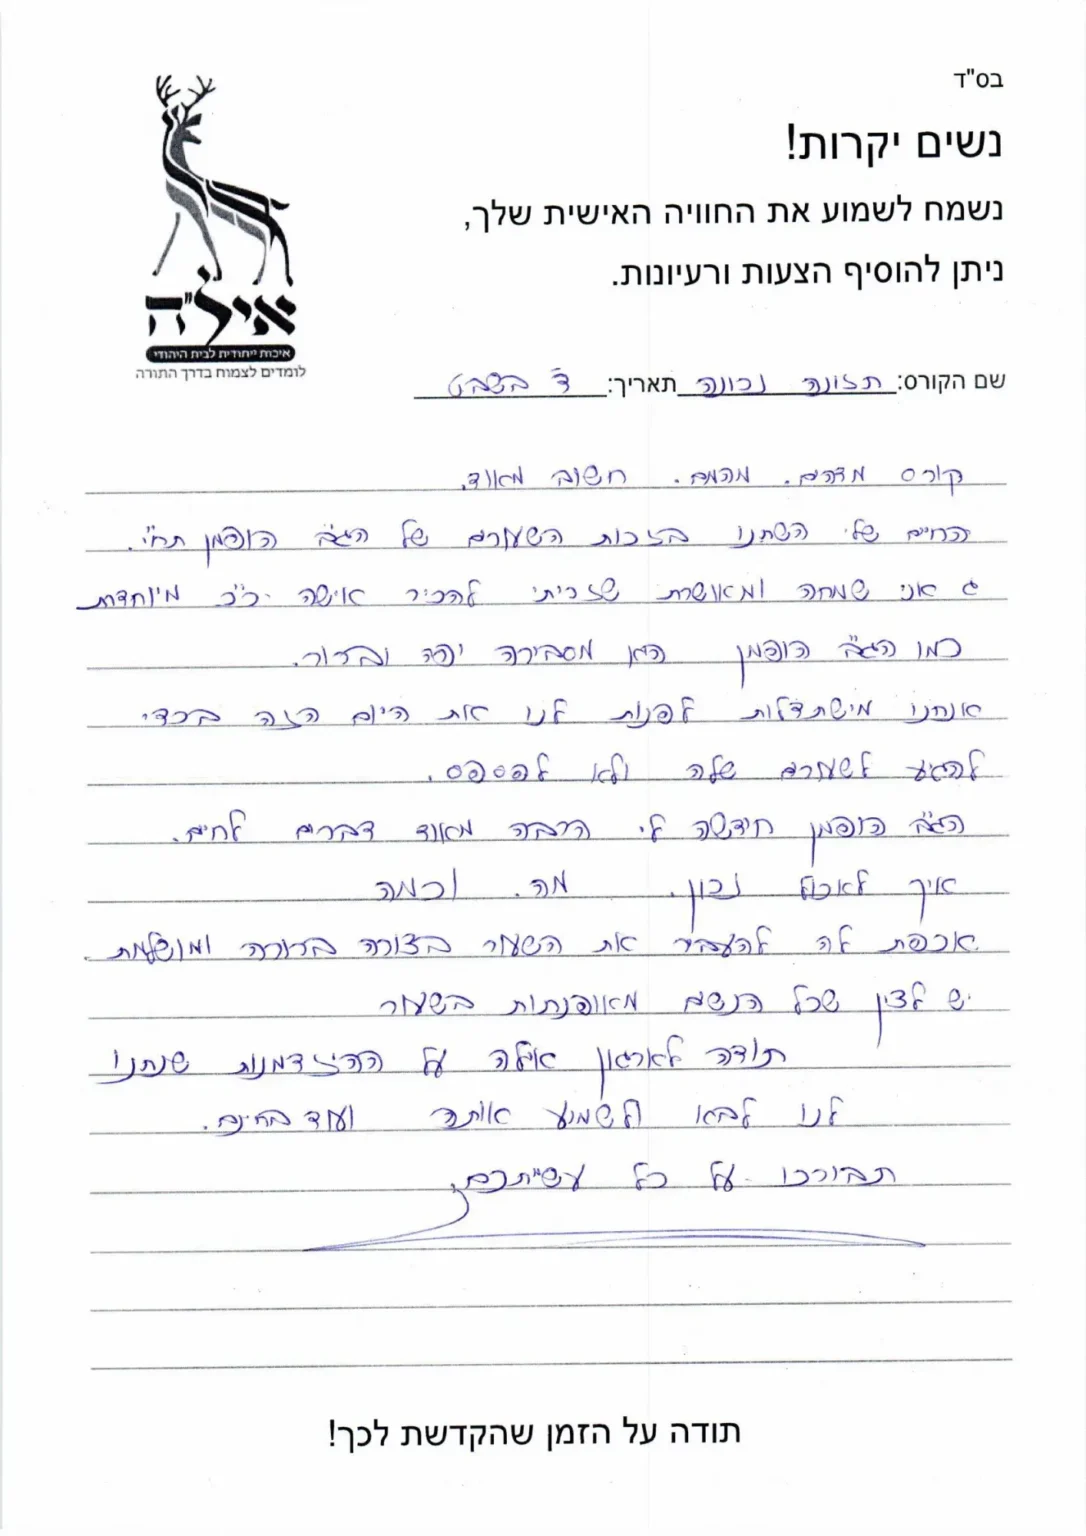 בס"ד
נשים יקרות!
נשמח לשמוע את החוויה האישית שלך,
ניתן להוסיף הצעות ורעיונות.
אילי"ה
איכות ייחודית לבית היהודי
לומדים לצמוח בדרך התורה
שם הקורס: תזונה נכונה תאריך: ד' בשבט
קורס מדהים. מהמם. חשוב מאוד.
החיים שלי השתנו בזכות השעורים של הגב' הופמן תחי'.
אני שמחה ומאושרת שזכיתי להכיר אישה כ"כ מיוחדת
כמו הגב' הופמן היא מסבירה יפה וברור.
אנחנו מישתדלות לפנות לנו את היום הזה בכדי
להגיע לשעורים שלה ולא לפספס.
הגב' הופמן חידשה לי הרבה מאוד דברים לחיים.
איך לאכול נכון. מה. וכמה
אכפת לה להעביר את השעור בצורה ברורה ומושלמת.
יש לציין שכל הנשים מאופנתות בשעור
תודה לארגון אילה על ההיזדמנות שנתנו
לנו לבוא ולשמוע אותה ועוד בחינם.
תבורכו על כל עשייתכם.
תודה על הזמן שהקדשת לכך!